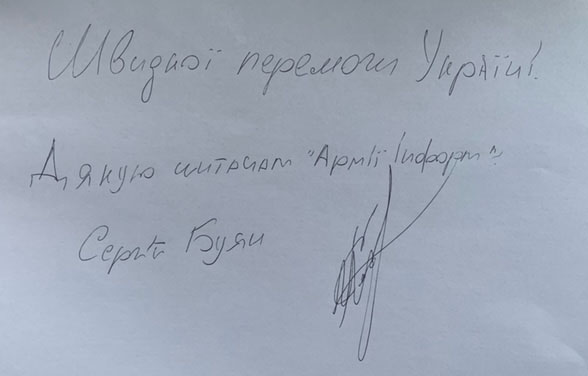 Швидкої перемоги Україні!
Дякую читачам "Армії Інформ".
Сергій Буян